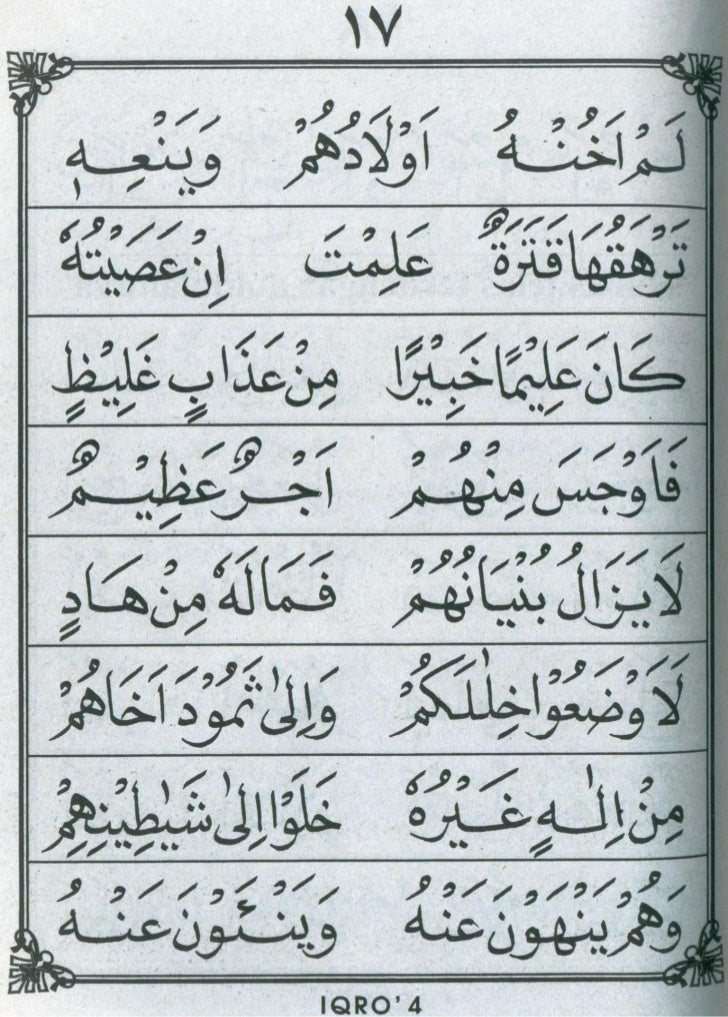 ١٧
لَمْ اَخُنْهُ اَوْلَادُهُمْ وَيَنْعِهٖ
تَرْهَقُهَا قَتَرَةٌ عَلِمْتَ اِنْ عَصَيْتُهٗ
كَانَ عَلِيْمًا خَبِيْرًا مِنْ عَذَابٍ غَلِيْظٍ
فَاَوْجَسَ مِنْهُمْ اَجْرٌ عَظِيْمٌ
لَا يَزَالُ بُنْيَانُهُمْ فَمَا لَهٗ مِنْ هَادٍ
لَاَوْضَعُوْا خِلٰلَكُمْ وَاِلٰى ثَمُوْدَ اَخَاهُمْ
مِنْ اِلٰهٍ غَيْرُهٗ خَلَوْا اِلٰى شَيٰطِيْنِهِمْ
وَهُمْ يَنْهَوْنَ عَنْهُ وَيَنْئَوْنَ عَنْهُ
IQRO' 4